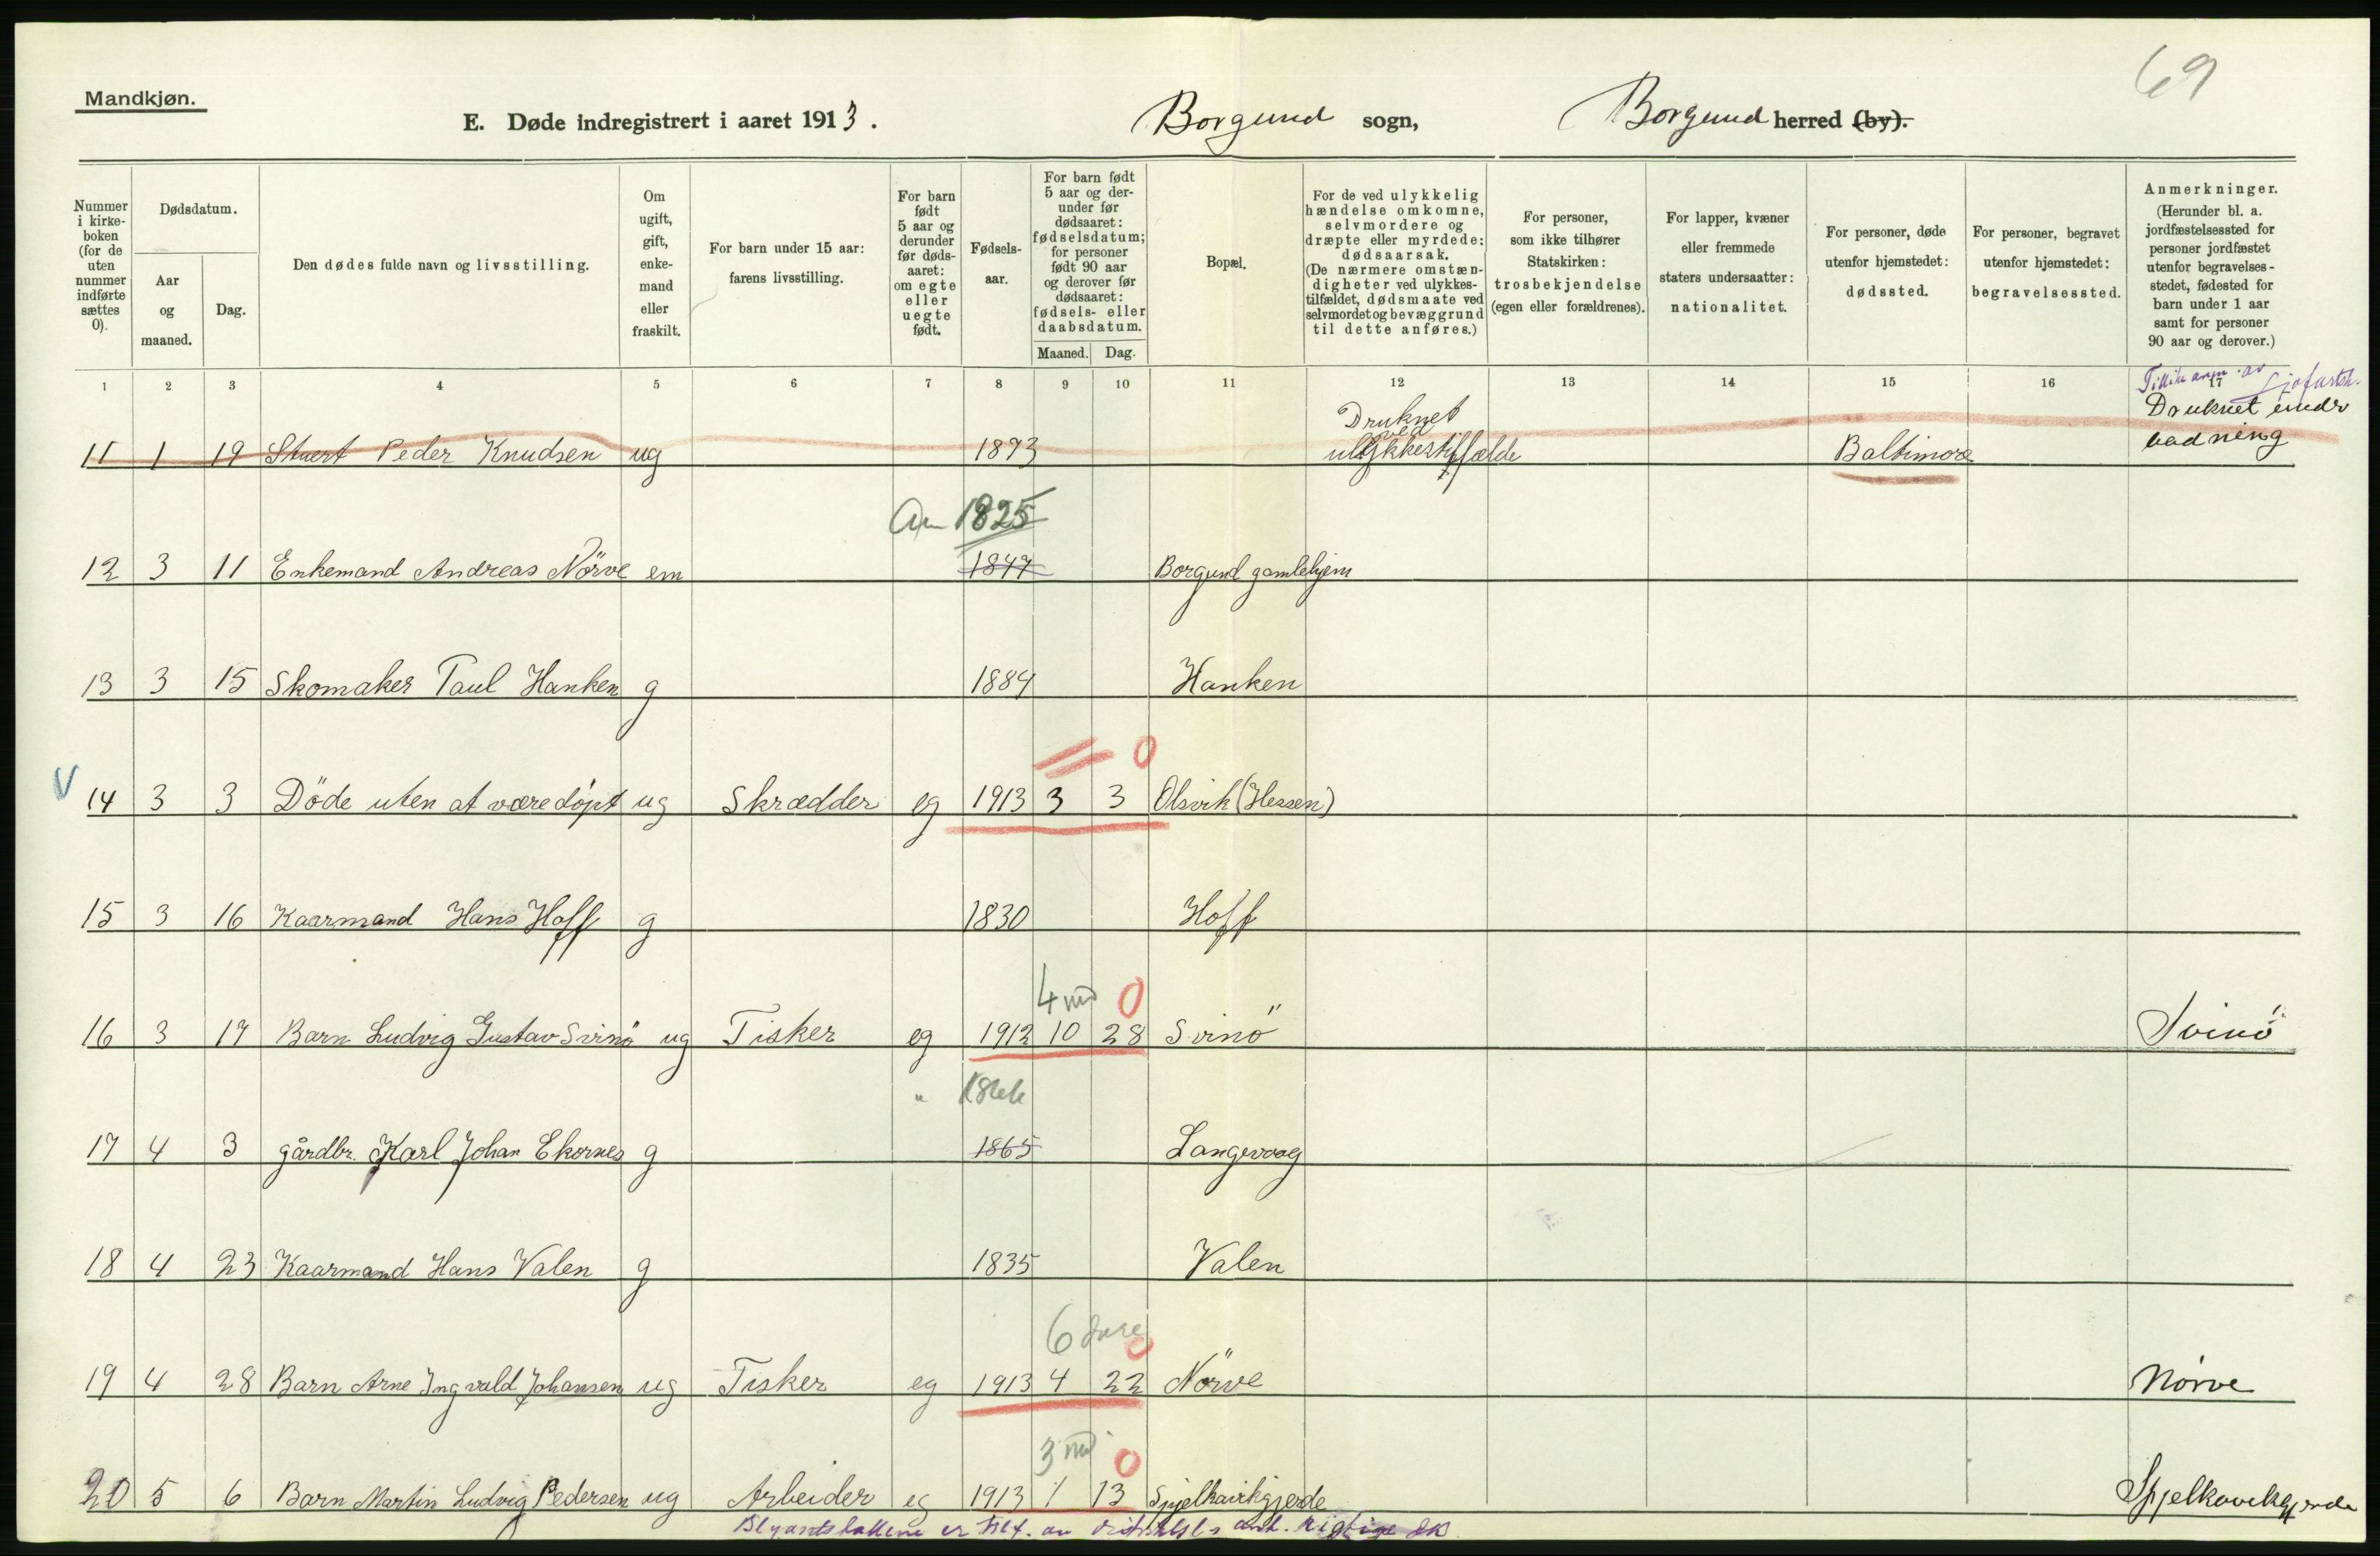 69
Mandkjøn.
E. Døde indregistrert i aaret 1913. Borgund sogn, Borgund herred (by).
Nummer i kirke-boken (for de uten nummer indførte sættes 0).
Dødsdatum.
Aar og maaned.
Dag.
Den dødes fulde navn og livsstilling.
Om ugift, gift, enke-mand eller fraskilt.
For barn under 15 aar: farens livsstilling.
For barn født 5 aar og derunder før døds-aaret: om egte eller uegte født.
Fødsels-aar.
For barn født 5 aar og der-under før dødsaaret: fødselsdatum; for personer født 90 aar og derover før dødsaaret: fødsels- eller daabsdatum.
Maaned.
Dag.
Bopæl.
For de ved ulykkelig hændelse omkomne, selvmordere og dræpte eller myrdede: dødsaarsak. (De nærmere omstæn-digheter ved ulykkes-tilfældet, dødsmaate ved selvmordet og bevæggrund til dette anføres.)
For personer, som ikke tilhører Statskirken: trosbekjendelse (egen eller forældrenes).
For lapper, kvæner eller fremmede staters undersaatter: nationalitet.
For personer, døde utenfor hjemstedet: dødssted.
For personer, begravet utenfor hjemstedet: begravelsessted.
Anmerkninger. (Herunder bl. a. jordfæstelsessted for personer jordfæstet utenfor begravelses-stedet, fødested for barn under 1 aar samt for personer 90 aar og derover.)
1 2 3 4 5 6 7 8 9 10 11 12 13 14 15 16 17
av
Druknet Druknet under
ved badning
11 1 19 Peder Knudsen ug 1893 ulykkestilfælde Baltimore
1825
12 3 11 Enkemand Andreas Nörve em 1847 Borgund gamlehjem
13 3 15 Skomaker Paul Hanken g 1884 Hanken
0
V 14 3 3 Döde uten at være döpt ug Skrædder eg 1913 3 3 Olsvik (Hessen)
15 3 16 Kaarmand Hans Hoff g 1830 Hoff
4 md 0
16 3 17 Barn Ludvig Gustav Svinö ug Fisker eg 1912 10 28 Svinö Svinö
" 1866
17 4 3 gårdbr. Karl Johan Ekornes g 1865 Langevaag
18 4 23 Kaarmand Hans Valen g 1835 Valen
6 dage 0
19 4 28 Barn Arne Ingvald Johansen ug Fisker eg 1913 4 22 Nörve Nörve
3 md 0
20 5 6 Barn Martin Ludvig Pedersen ug Arbeider eg 1913 1 13 Spjelkavikgjerde Spjelkavikgjerde
er av rigtige